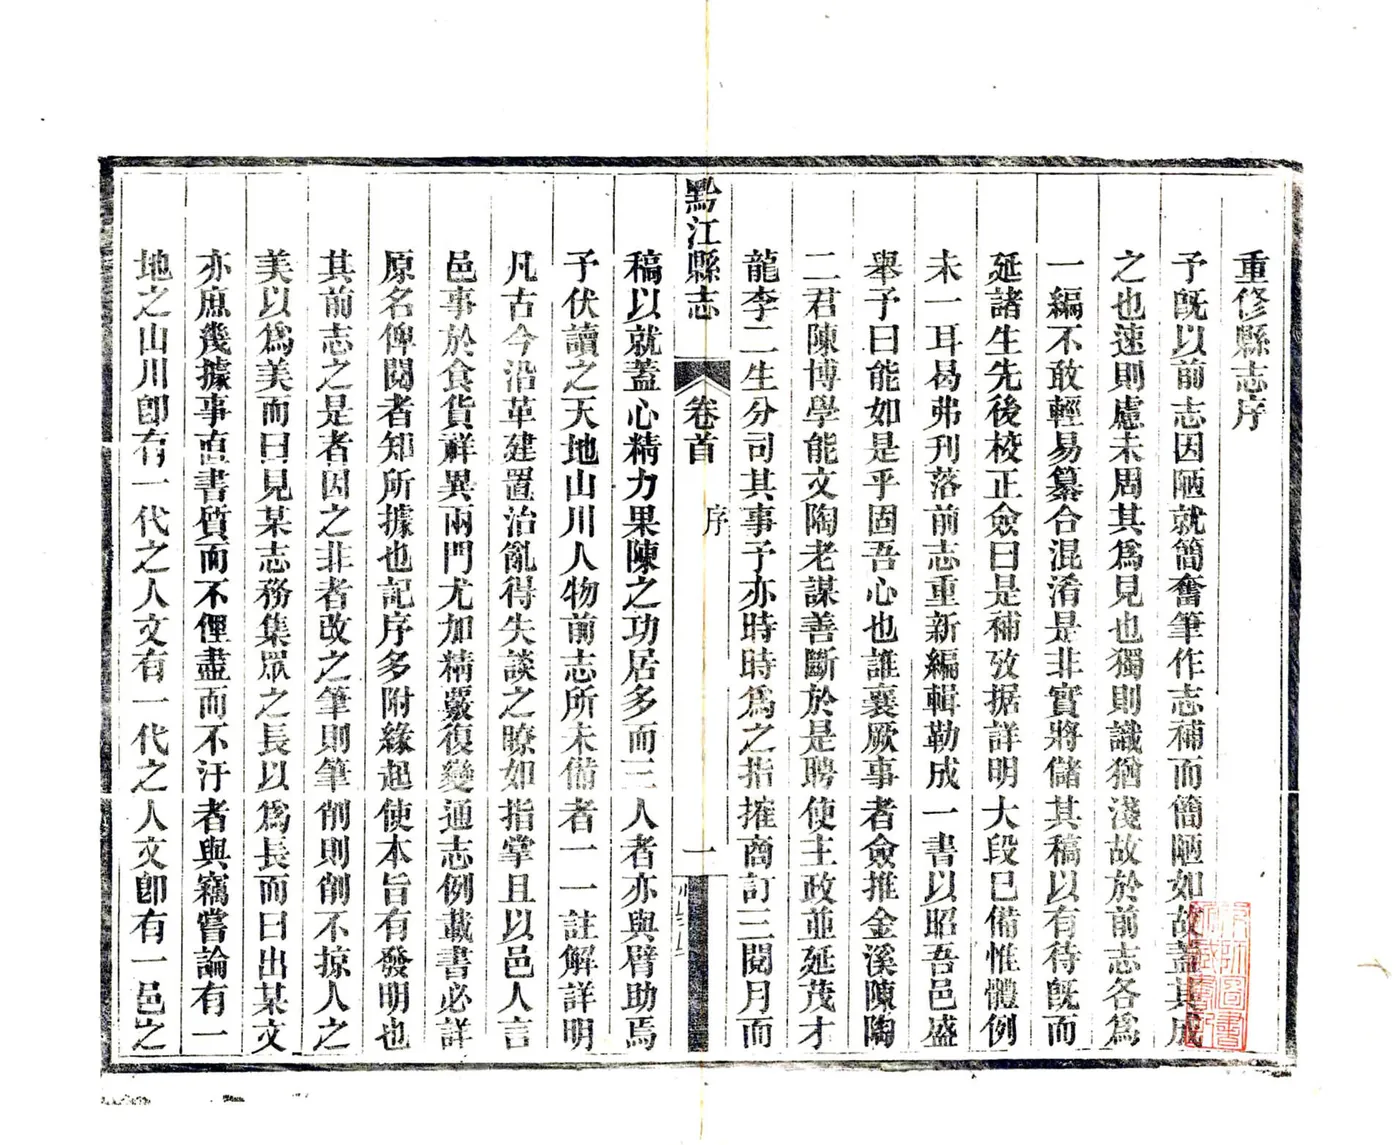 重修縣志序
予旣以前志因陋就簡奮筆作志補而簡陋如故蓋其成
之也速則慮未周其爲見也獨則識猶淺故於前志各爲
一編不敢輕易纂合混淆是非實將儲其稿以有待旣而
延諸生先後校正僉曰是補攷据詳明大段已備惟體例
未一耳曷弗刊落前志重新編輯勒成一書以昭吾邑盛
舉予曰能如是乎固吾心也誰襄厥事者僉推金溪陳陶
二君陳博學能文陶老謀善斷於是聘使主政並延茂才
龍李二生分司其事予亦時時爲之指摧商訂三閱月而
黔江縣志
卷首
序
一
稿以就蓋心精力果陳之功居多而三人者亦與臂助焉
予伏讀之天地山川人物前志所未備者一一註解詳明
凡古今沿革建置治亂得失談之瞭如指掌且以邑人言
邑事於食貨祥異兩門尤加精覈復變通志例載書必詳
原名俾閱者知所據也記序多附緣起使本旨有發明也
其前志之是者因之非者改之筆則筆削則削不掠人之
美以爲美而曰見某志務集眾之長以爲長而曰出某文
亦庶幾據事直書質而不俚盡而不汙者與竊嘗論有一
地之山川卽有一代之人文有一代之人文卽有一邑之